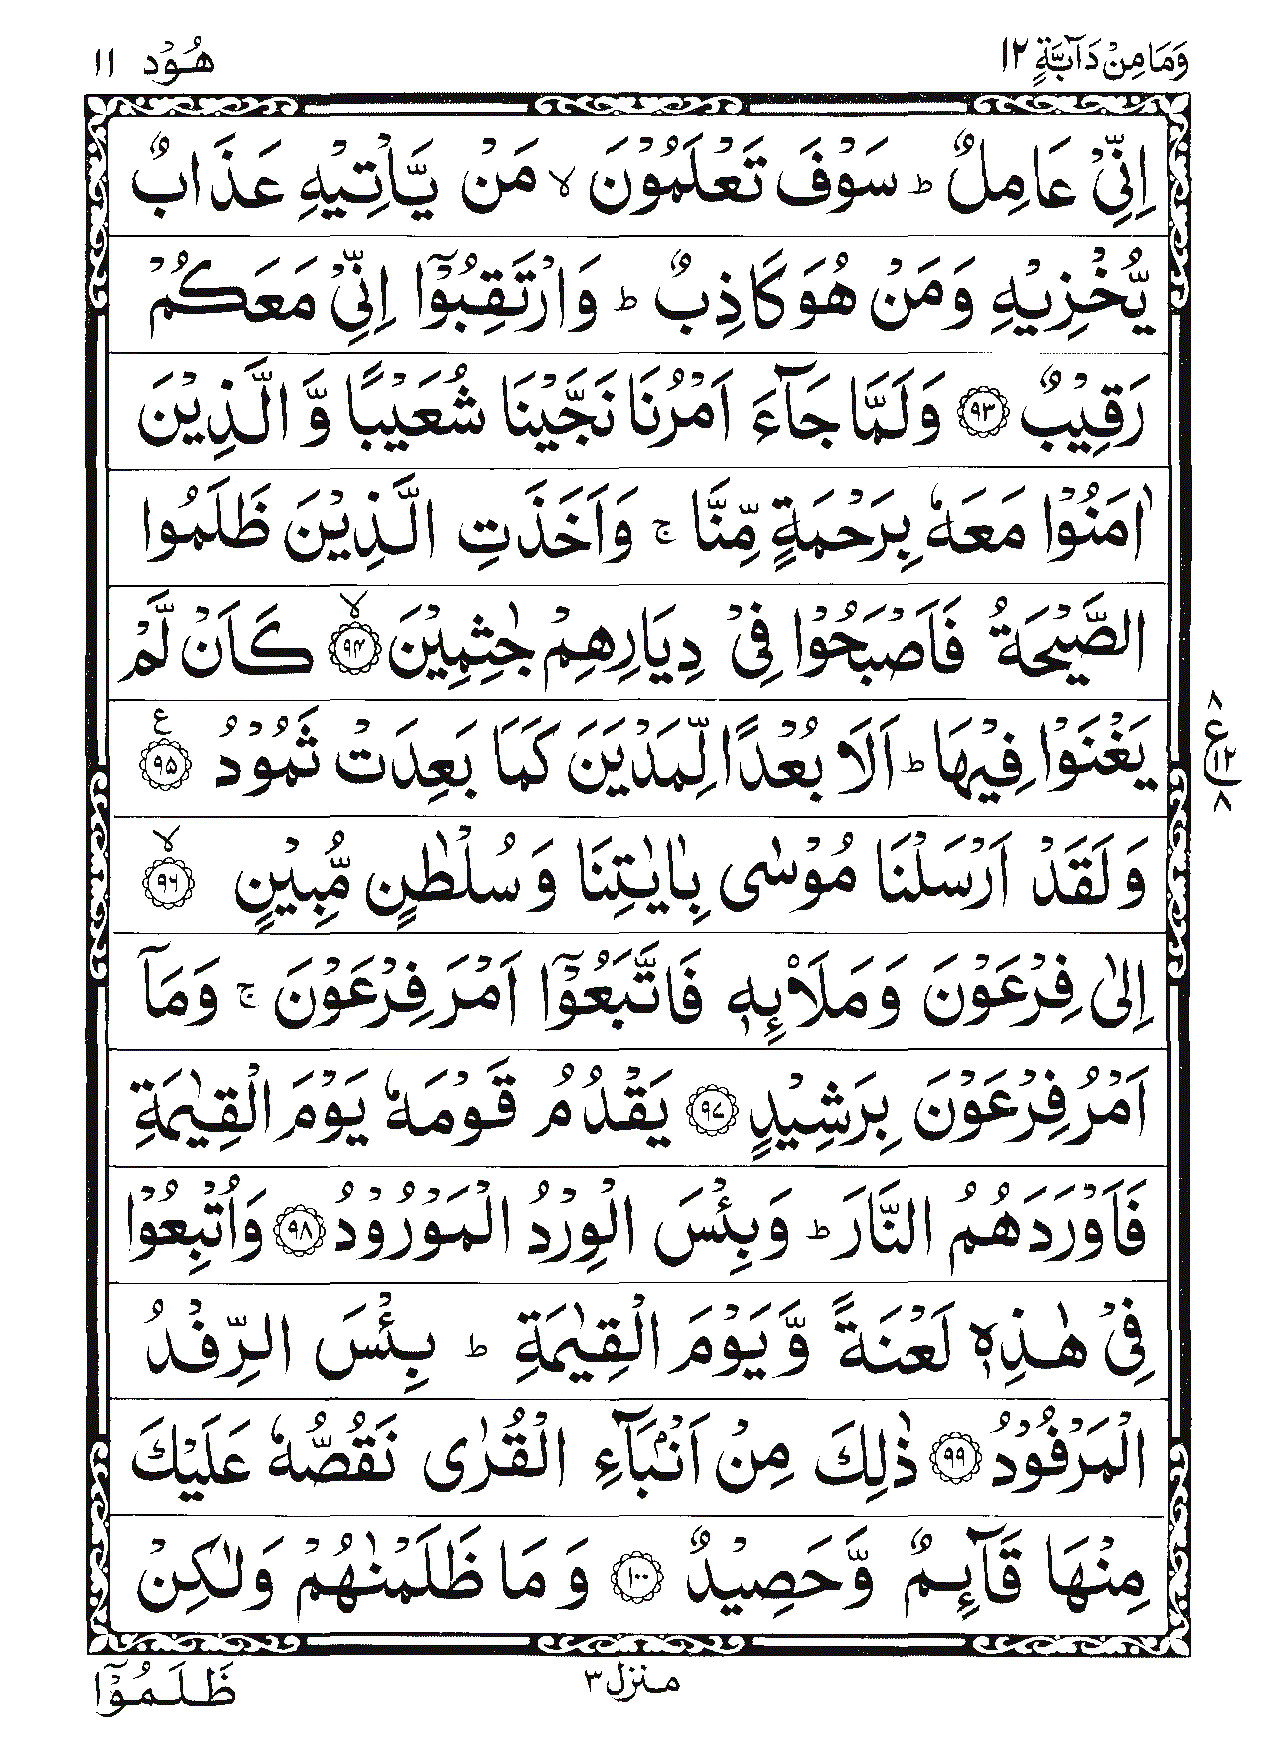 وَمَا مِنْ دَآبَّةٍ ١٢
هُوْد ١١
اِنِّىْ عَامِلٌ ؕ سَوْفَ تَعْلَمُوْنَ ۙ مَنْ يَّاْتِيْهِ عَذَابٌ
يُّخْزِيْهِ وَمَنْ هُوَ كَاذِبٌ ؕ وَارْتَقِبُوْۤا اِنِّىْ مَعَكُمْ
رَقِيْبٌ ۝٩٣ وَلَمَّا جَآءَ اَمْرُنَا نَجَّيْنَا شُعَيْبًا وَّ الَّذِيْنَ
اٰمَنُوْا مَعَهٗ بِرَحْمَةٍ مِّنَّا ۚ وَاَخَذَتِ الَّذِيْنَ ظَلَمُوا
الصَّيْحَةُ فَاَصْبَحُوْا فِىْ دِيَارِهِمْ جٰثِمِيْنَ ۙ۝٩٤ كَاَنْ لَّمْ
يَغْنَوْا فِيْهَا ؕ اَلَا بُعْدًا لِّمَدْيَنَ كَمَا بَعِدَتْ ثَمُوْدُ ۝٩٥ ع
٨ ع ١٢ ٨
وَلَقَدْ اَرْسَلْنَا مُوْسٰى بِاٰيٰتِنَا وَسُلْطٰنٍ مُّبِيْنٍ ۙ۝٩٦
اِلٰى فِرْعَوْنَ وَمَلَا۟ئِهٖ فَاتَّبَعُوْۤا اَمْرَ فِرْعَوْنَ ۚ وَمَاۤ
اَمْرُ فِرْعَوْنَ بِرَشِيْدٍ ۝٩٧ يَقْدُمُ قَوْمَهٗ يَوْمَ الْقِيٰمَةِ
فَاَوْرَدَهُمُ النَّارَ ؕ وَبِئْسَ الْوِرْدُ الْمَوْرُوْدُ ۝٩٨ وَاُتْبِعُوْا
فِىْ هٰذِهٖ لَعْنَةً وَّيَوْمَ الْقِيٰمَةِ ؕ بِئْسَ الرِّفْدُ
الْمَرْفُوْدُ ۝٩٩ ذٰلِكَ مِنْ اَنْۢبَآءِ الْقُرٰى نَقُصُّهٗ عَلَيْكَ
مِنْهَا قَآئِمٌ وَّحَصِيْدٌ ۝١٠٠ وَمَا ظَلَمْنٰهُمْ وَلٰكِنْ
منزل ٣
ظَلَمُوْۤا